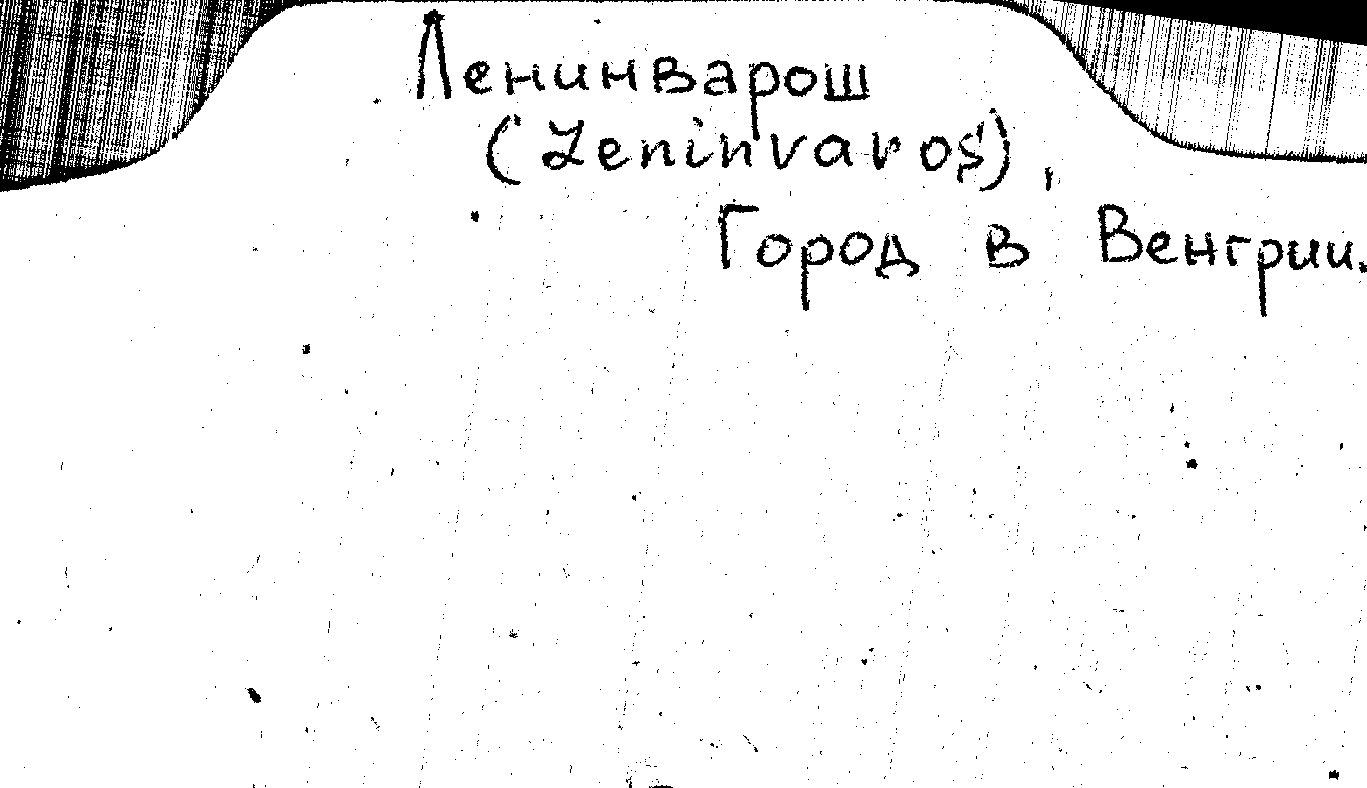 Ленинварош
(Leninvaros),
Город в Венгрии.